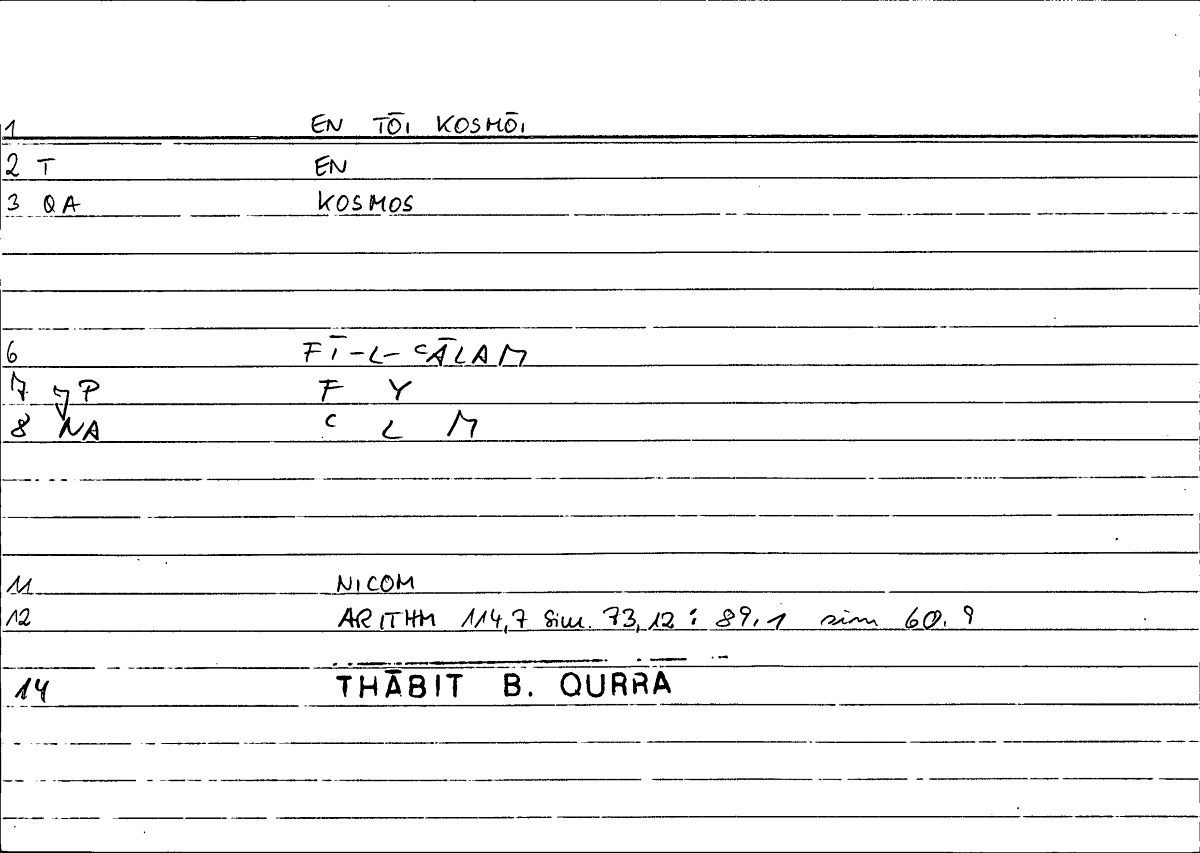 1 EN TŌI KOSMŌI
2 T EN
3 QA KOSMOS
6 FĪ-L-ʿĀLAM
7 P F Y
8 NA ʿ L M
11 NICOM
12 ARITHM 114,7 sim. 73,12 : 89.1 sim 60.9
14 THĀBIT B. QURRA